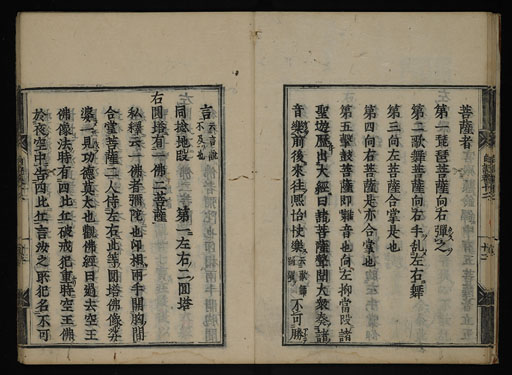 菩薩者
第一琵琶菩薩向右彈之
第二歌舞菩薩向右手乱左右舞
第三向左菩薩合掌是也
第四向右菩薩是亦合掌也
第五擊鼓菩薩即雜音也向左抑當段諸
聖遊歷出大經曰諸菩薩聲聞大衆奏諸
音樂前後來往熙怡快樂 不可勝
言
同撿地段 第一左右二圓塔
右圓塔有一佛二菩薩
私釋云一佛者彌陀也印相兩手開胸間
合掌菩薩二人侍左右此等圓塔佛像
婆一見功德莫大也觀佛經曰過去空王
佛像法時有四比丘破戒犯重時空王佛
於夜空中告四比丘言汝之所犯名不可